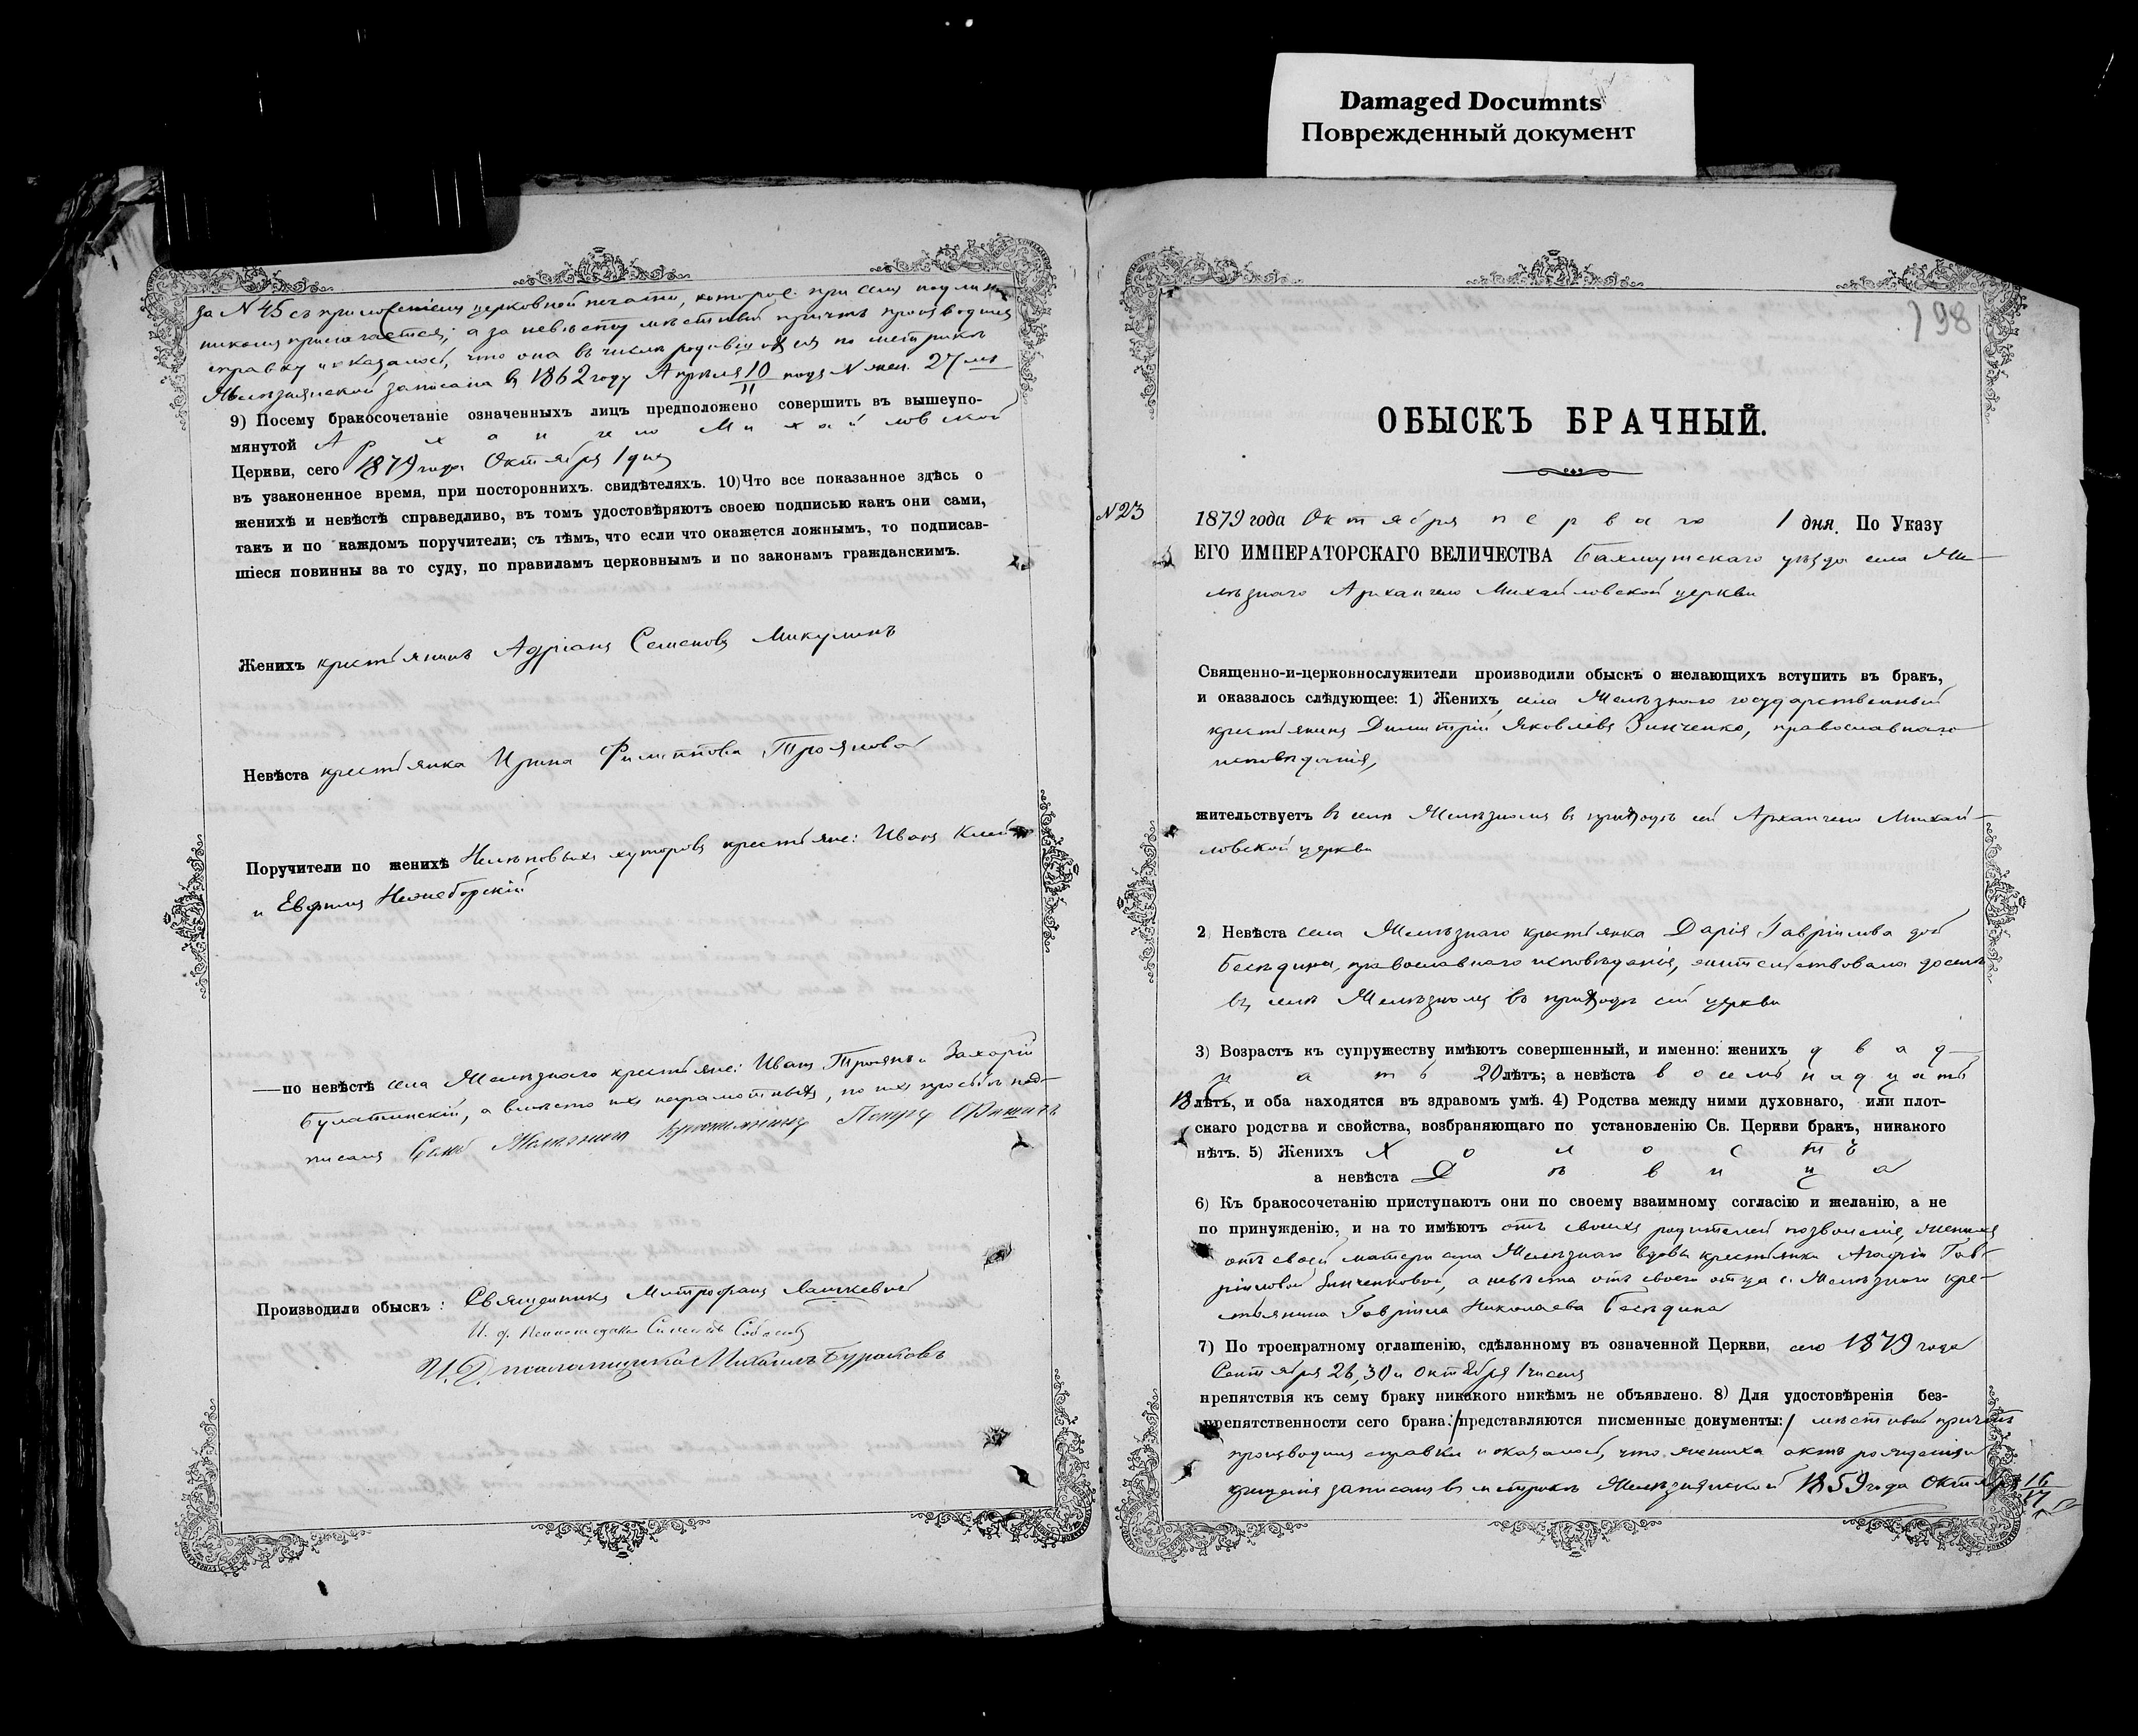 Damaged Documnts
Поврежденный документ
за N 45 съ приложеніемъ церковной печати, которое при семъ подлин-
никомъ прилагается; а за невѣсту мѣстный причтъ производилъ
справку и оказалось, что она въ числѣ родившихся по метрикѣ
Желѣзнянской записана въ 1862 году Апрѣля 10/11 подъ N жен. 27мъ
9) Посему бракосочетаніе означенныхъ лицъ предположено совершить въ вышеупо-
мянутой Архангело Михайловской
Церкви, сего 1879 года Октября 1 дня
въ узаконенное время, при постороннихъ свидѣтеляхъ. 10) Что все показанное здѣсь о
женихѣ и невѣстѣ справедливо, въ томъ удостовѣряютъ своею подписью какъ они сами,
такъ и по каждомъ поручители; съ тѣмъ, что если что окажется ложнымъ, то подписав-
шіеся повинны за то суду, по правиламъ церковнымъ и по законамъ гражданскимъ.
Женихъ крестьянинъ Адріанъ Семеновъ Микулинъ
Невѣста крестьянка Ирина Филиппова Троянова
Поручители по женихѣ хуторовъ крестьяне: Иванъ
и Евфимъ
— по невѣстѣ села Желѣзнаго крестьяне: Иванъ Троянъ и Захарій
Булатинскій, а вмѣсто ихъ неграмотныхъ, по ихъ просьбѣ под-
писалъ Села Желѣзнаго Крестьянинъ Петръ
Производили обыскъ: Священникъ Митрофанъ
И. д. Псаломщика
И. Д. псаломщика Михаилъ Бураковъ
198
ОБЫСКЪ БРАЧНЫЙ.
N 23
1879 года Октября перваго 1 дня. По Указу
ЕГО ИМПЕРАТОРСКАГО ВЕЛИЧЕСТВА Бахмутскаго уѣзда села Же-
лѣзнаго Архангело Михайловской церкви
Священно-и-церковнослужители производили обыскъ о желающихъ вступить въ бракъ,
и оказалось слѣдующее: 1) Женихъ села Желѣзнаго государственный
крестьянинъ Димитрій Яковлевъ Зинченко, православнаго
исповѣданія,
жительствуетъ въ селѣ Желѣзномъ въ приходѣ сей Архангело Михай-
ловской церкви
2 Невѣста села Желѣзнаго крестьянка Дарія Гавріилова дочь
Бесѣдина, православнаго исповѣданія, жительствовала доселѣ
въ селѣ Желѣзномъ въ приходѣ сей церкви
3) Возрастъ къ супружеству имѣютъ совершенный, и именно: женихъ двад-
цать 20 лѣтъ; а невѣста восемьнадцать
18 лѣтъ, и оба находятся въ здравомъ умѣ. 4) Родства между ними духовнаго, или плот-
скаго родства и свойства, возбраняющаго по установленію Св. Церкви бракъ, никакого
нѣтъ. 5) Женихъ Холостъ
а невѣста Дѣвица
6) Къ бракосочетанію приступаютъ они по своему взаимному согласію и желанію, а не
по принужденію, и на то имѣютъ отъ своихъ родителей позволеніе, женихъ
отъ своей матери села Желѣзнаго вдовы крестьянки Агафіи Гав-
ріиловой Зинченковой, а невѣста отъ своего отца с. Желѣзнаго кре-
стьянина Гавріила Николаева Бесѣдина
7) По троекратному оглашенію, сдѣланному въ означенной Церкви, сего 1879 года
Сентября 26, 30 и Октября 1 числъ
препятствія къ сему браку никакого никѣмъ не объявлено. 8) Для удостовѣренія без-
препятственности сего брака: /представляются писменные документы:/ мѣстный причтъ
производилъ справки и оказалось, что жениха актъ рожденія и
крещенія записанъ въ метрикѣ Желѣзнянской 1859 года Октября 16/17